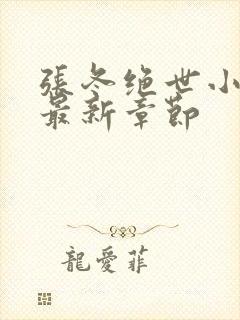 張冬絕世小
最新章節
龍愛菲